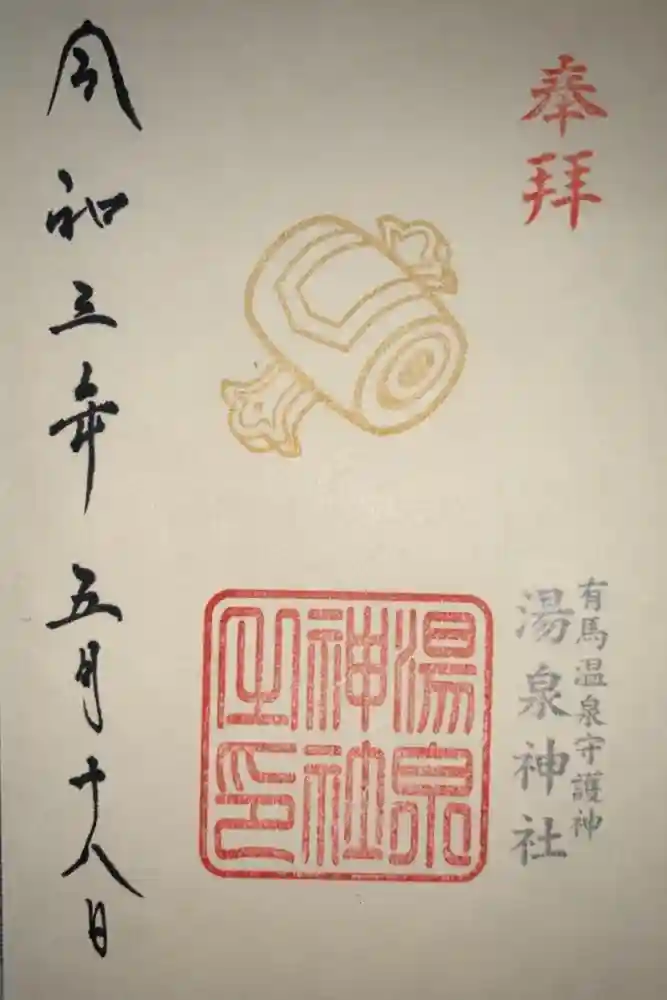 奉拝
有馬温泉守護神
湯泉神社
湯泉
神社
之印
令和三年 五月十八日